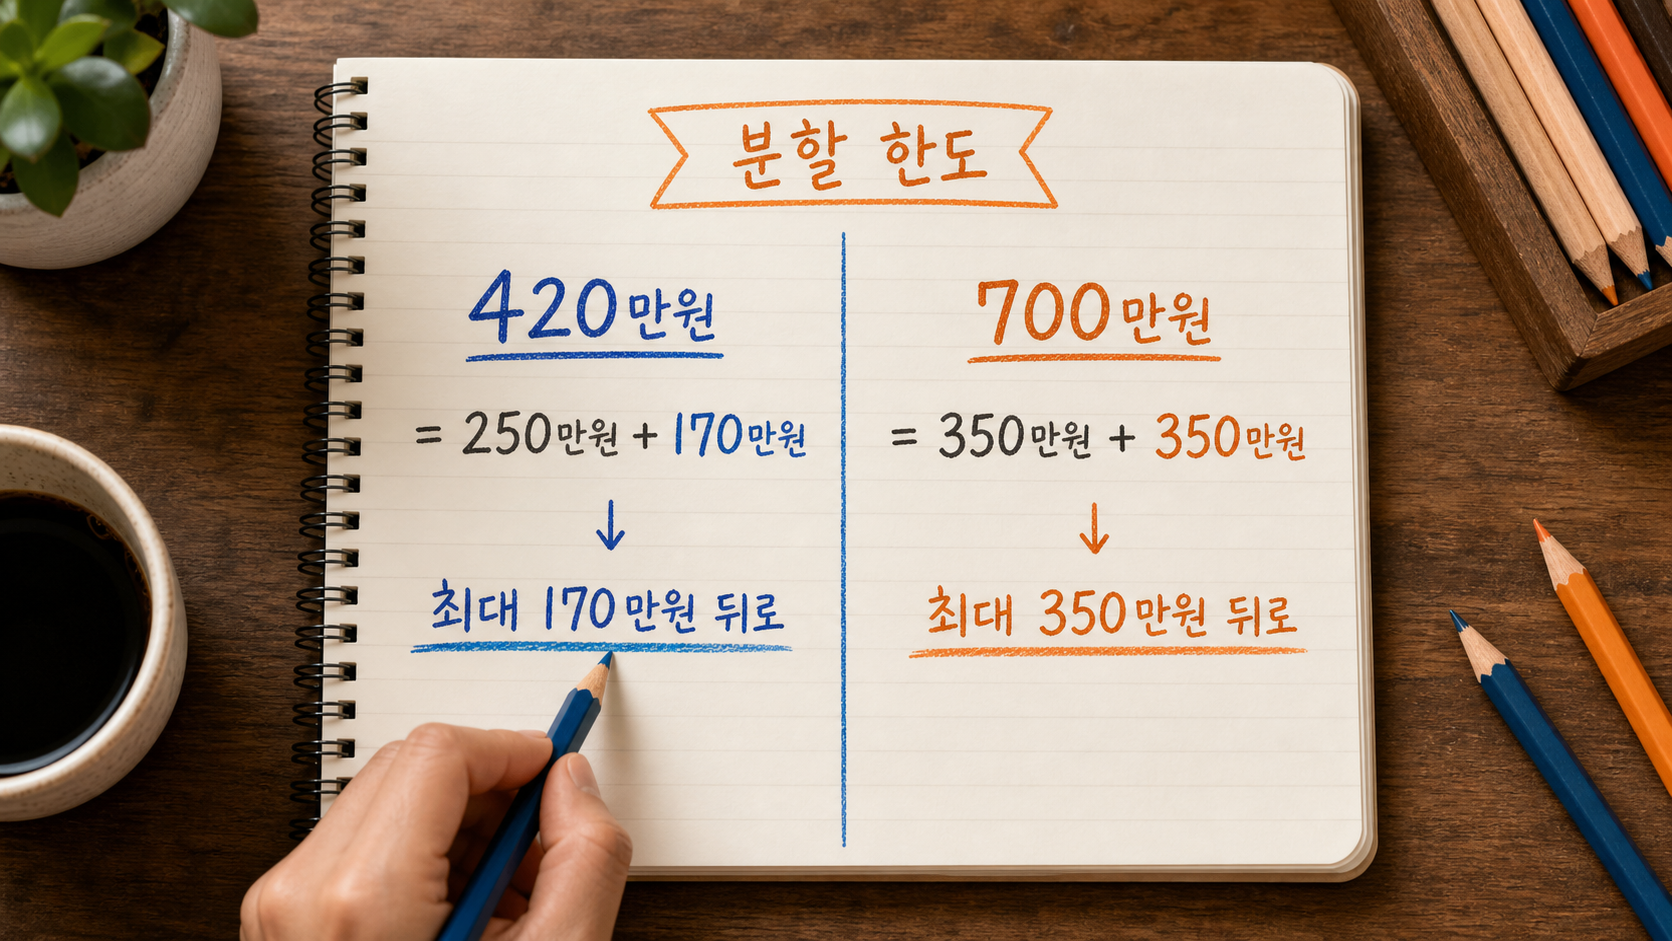 분할 한도
420만원
= 250만원 + 170만원
↓
최대 170만원 뒤로
700만원
= 350만원 + 350만원
↓
최대 350만원 뒤로